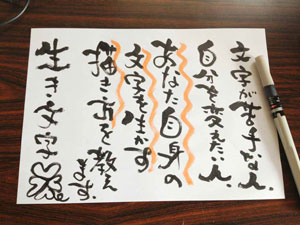 文字が苦手な人、
自分を変えたい人、
あなた自身の
文字を生かす
描き方を教えます。
生き文字